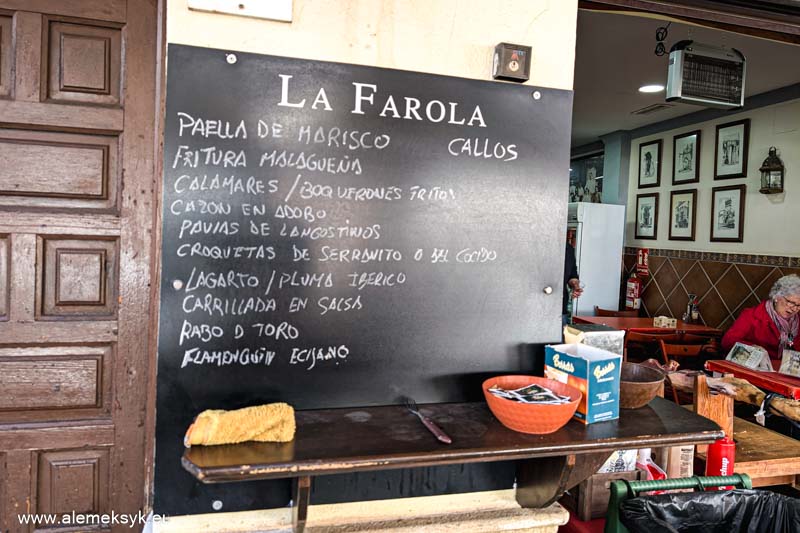 LA FAROLA
PAELLA DE MARISCO
CALLOS
FRITURA MALAGUEÑA
CALAMARES / BOQUERONES FRITOS
CAZON EN ADOBO
PAVIAS DE LANGOSTINOS
CROQUETAS DE SERRANITO O DEL COCIDO
LAGARTO / PLUMA IBERICO
CARRILLADA EN SALSA
RABO D TORO
FLAMENQUIN ECIJANO
www.alemeksyk.eu